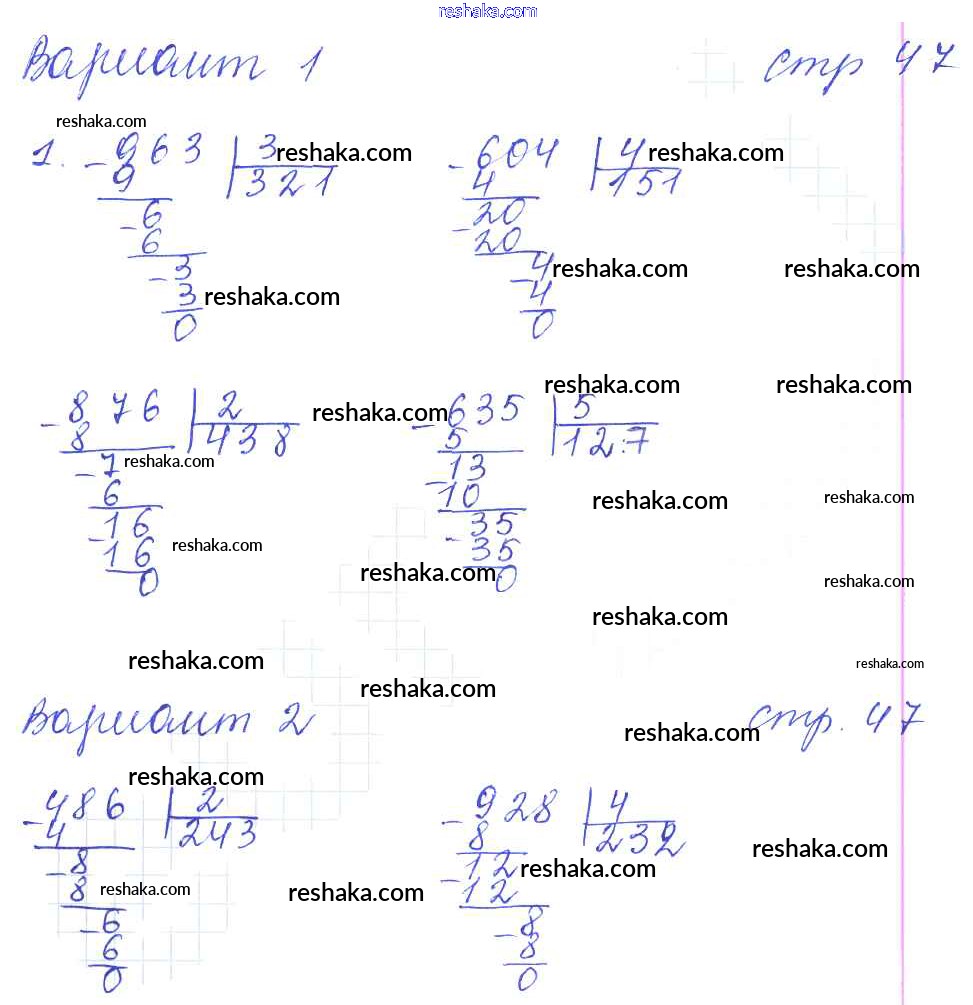 reshaka.com
Вариант 1 стр 47
reshaka.com
1. - 963 | 3 reshaka.com - 604 | 4 reshaka.com
9 321 4 151
- 6 - 20
6 20
- 3 4 reshaka.com reshaka.com
3 reshaka.com - 4
0 0
reshaka.com reshaka.com
- 876 | 2 reshaka.com - 635 | 5
8 438 5 127
- 7 reshaka.com - 13
6 10 reshaka.com reshaka.com
- 16 - 35
16 reshaka.com 35
0 reshaka.com 0 reshaka.com
reshaka.com
reshaka.com reshaka.com
reshaka.com
Вариант 2 reshaka.com стр. 47
reshaka.com
- 486 | 2 - 928 | 4
4 243 8 232 reshaka.com
- 8 - 12 reshaka.com
8 reshaka.com reshaka.com 12
- 6 - 8
6 8
0 0